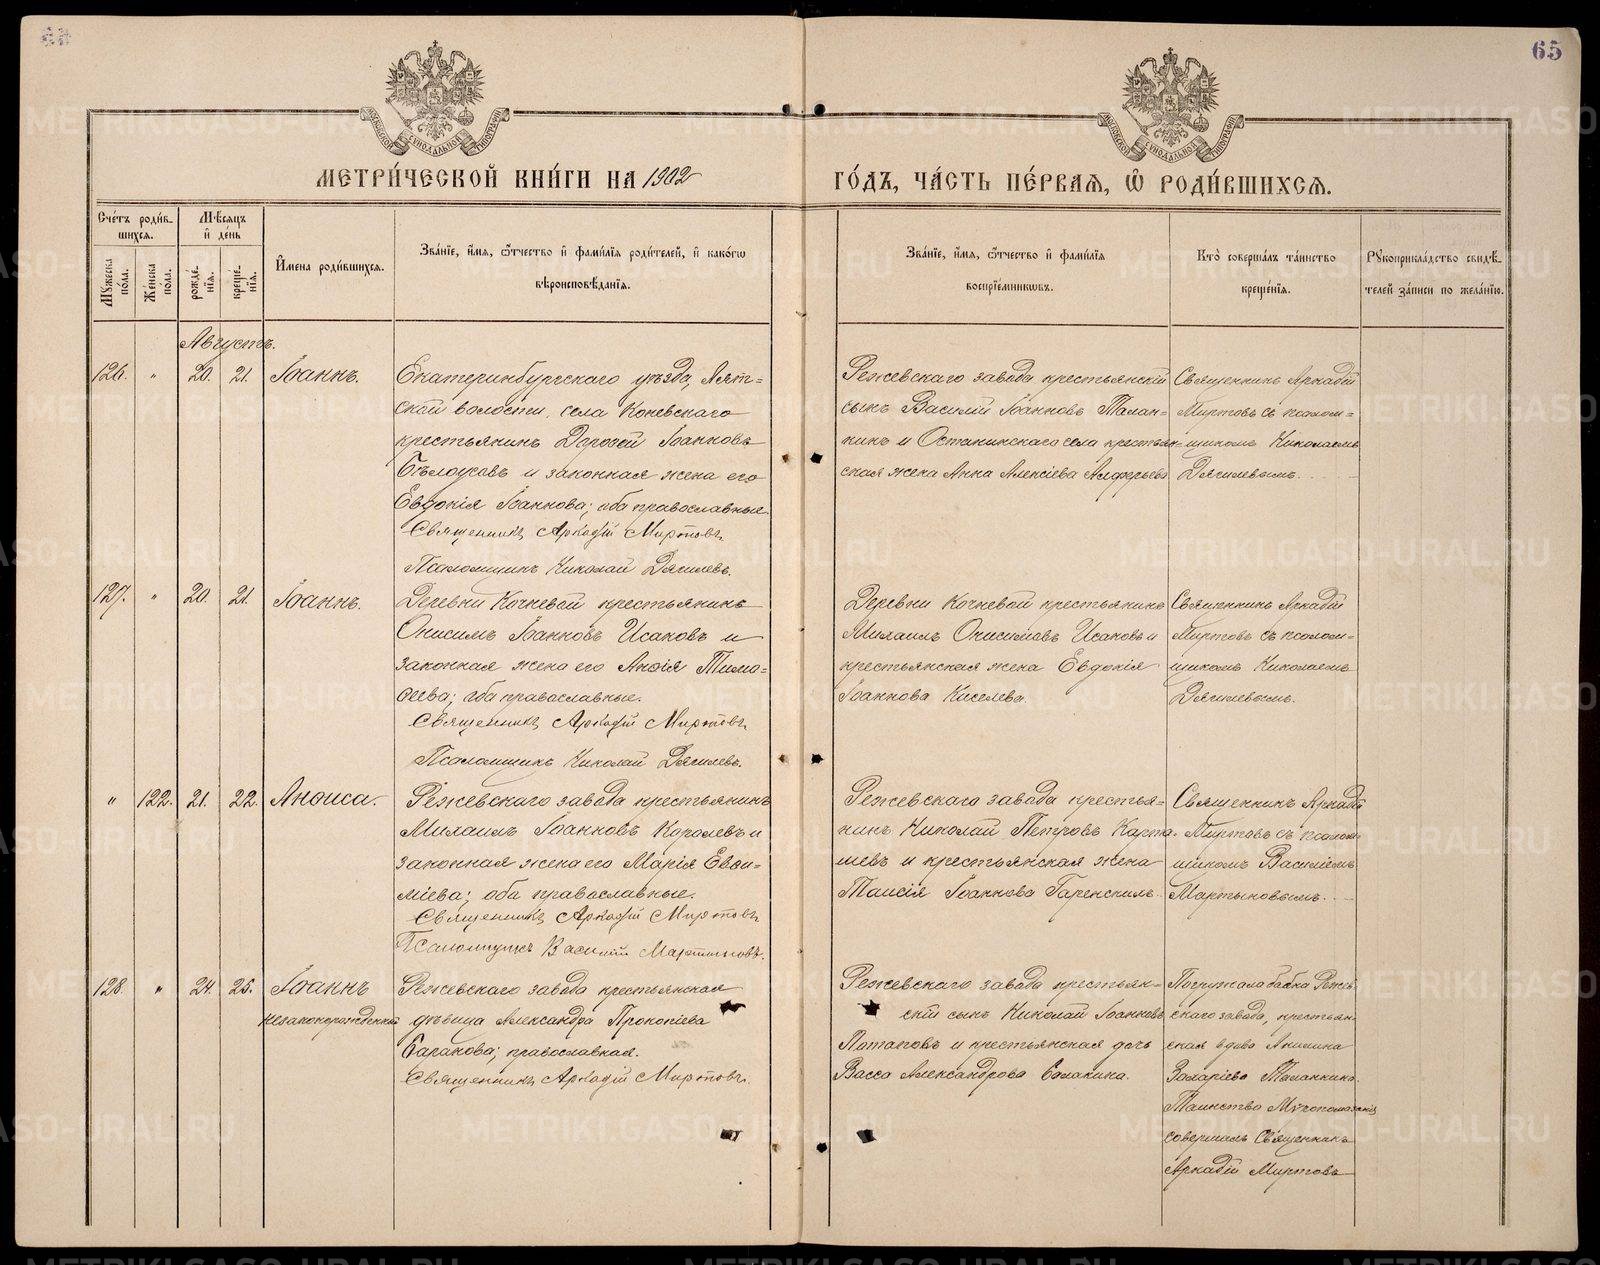 65
МЕТРИ́ЧЕСКОЙ КНИ́ГИ НА 1902
ГО́ДЪ, ЧА́СТЬ ПЕ́РВАЯ, Ѽ РОДИ́ВШИХСЯ.
Сче́тъ роди́в-
шихся.
Мꙋ́жеска по́ла.
Же́нска по́ла.
Мѣ́сяцъ
и҆ де́нь
рожде́-
нїѧ.
креще́-
нїѧ.
И҆мена роди́вшихся.
Зва́нїе, и҆́мя, ѻ҆́тчество и҆ фами́лїя роди́телей, и҆ како́гѡ
вѣроисповѣ́данїя.
Зва́нїе, и҆́мя, ѻ҆́тчество и҆ фами́лїя
воспрїе́мникѡвъ.
Кто̀ соверша́лъ та́инство
креще́нїя.
Рꙋкоприкла́дство свидѣ́-
телей за́писи по жела́нїю.
Августъ.
126. " 20. 21. Іоаннъ.
Екатеринбургскаго уѣзда, Аят-
ской волости, села Коневскаго
крестьянинъ Дорофей Іоанновъ
Бѣлоусовъ и законная жена его
Евдокія Іоаннова; оба православные.
Священникъ Аркадій Миртовъ.
Псаломщикъ Николай Дягилевъ.
Режевскаго завода крестьянскій
сынъ Василій Іоанновъ Талан-
кинъ и Останинскаго села крестьян-
ская жена Анна Алексіева Алферьева
Священникъ Аркадій
Миртовъ съ псалом-
щикомъ Николаемъ
Дягилевымъ.
127. " 20. 21. Іоаннъ.
Деревни Кочневой крестьянинъ
Онисимъ Іоанновъ Исаковъ и
законная жена его Анѳія Тимо-
ѳеева; оба православные.
Священникъ Аркадій Миртовъ.
Псаломщикъ Николай Дягилевъ.
Деревни Кочневой крестьянинъ
Михаилъ Онисимовъ Исаковъ и
крестьянская жена Евдокія
Іоаннова Киселева.
Священникъ Аркадій
Миртовъ съ псалом-
щикомъ Николаемъ
Дягилевымъ.
" 122. 21. 22. Анѳиса.
Режевскаго завода крестьянинъ
Михаилъ Іоанновъ Королевъ и
законная жена его Марія Евѳи-
міева; оба православные.
Священникъ Аркадій Миртовъ.
Псаломщикъ Василій Мартыновъ.
Режевскаго завода крестья-
нинъ Николай Петровъ Карта-
шевъ и крестьянская жена
Таисія Іоаннова
Священникъ Аркадій
Миртовъ съ псалом-
щикомъ Василіемъ
Мартыновымъ.
128. " 24. 25. Іоаннъ
незаконорожденный
Режевскаго завода крестьянская
дѣвица Александра Прокопіева
Баранова; православная.
Священникъ Аркадій Миртовъ.
Режевскаго завода крестьян-
скій сынъ Николай Іоанновъ
Потаповъ и крестьянская дочь
Васса Александрова
Погружала бабка Режев-
скаго завода, крестьян-
ская вдова Акилина
Захаріева Таланкина.
Таинство Мѵропомазанія
совершалъ Священникъ
Аркадій Миртовъ